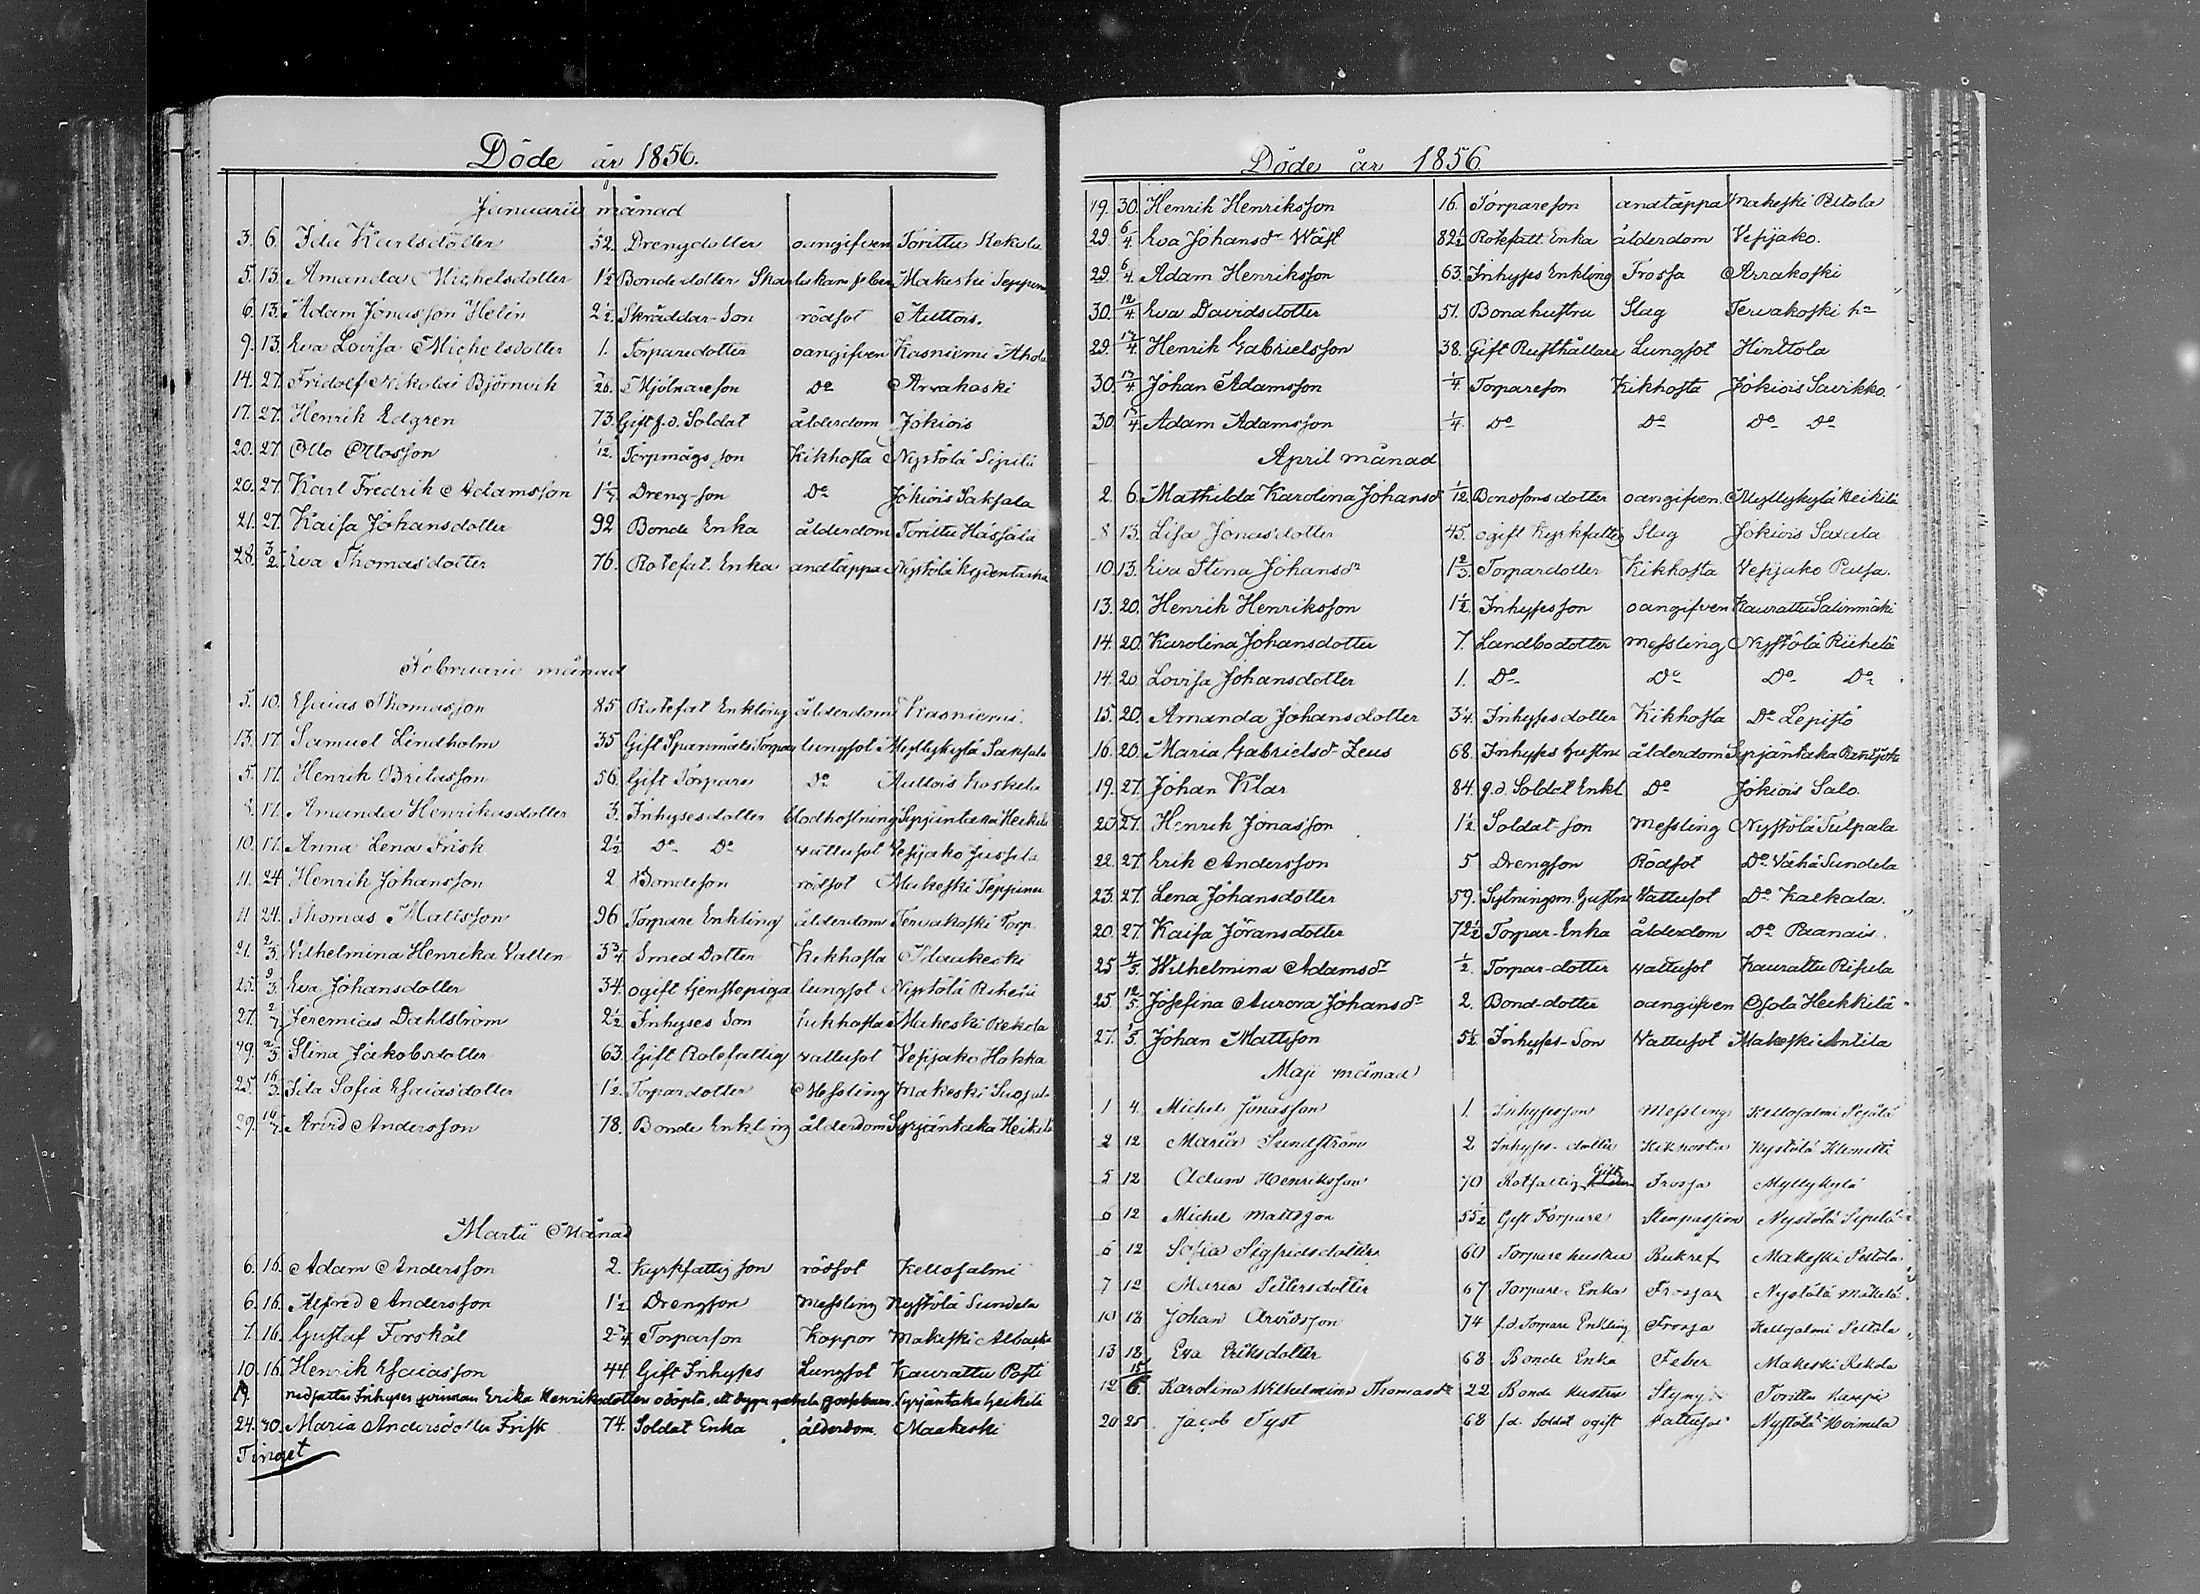 Döde år 1856.
Januarii månad
3. 6. Ida Karlsdotter 1/52 Drengdotter oangifven Torittu Rekola
5. 13. Amanda Michelsdotter 1 1/2 Bondedotter Skarlakans feber Makeski Seppu
6. 13. Adam Jonasson Helin 2 1/2. Skräddar-Son rödsot Auttois.
9. 13. Eva Lovisa Michelsdotter 1. Torparedotter oangifven Kasniemi Ahola
14. 27. Fridolf Nikolai Björnvik /26. Mjölnareson Do Arrakoski
17. 27. Henrik Edgren 73. Gift f.d. Soldat ålderdom Jokiois
20. 27. Otto Ottosson 1/12. Torpmågs son Kikhosta Nystölä Sipilä
20. 27. Karl Fredrik Adamsson 1 Dreng-son Do Jokiois Saksala
21. 27. Kaisa Johansdotter 92 Bonde Enka ålderdom Torittu Hassala
28. 3/2. Eva Thomasdotter 76. Rotefat. Enka andtäppa Nystölä
Februarii månad
5. 10. Esaias Thomasson 85 Rotefat Enkling ålderdom Kasniemi.
13. 17. Samuel Lindholm 35 Gift Spanmåls Torpare lungsot Myllykylä Saksala
5. 17. Henrik Britasson 56. Gift Torpare Do Auttois Koskela
17. Amanda Henrikasdotter 3. Inhysesdotter blodhostning Syrjäntaka Heikkilä
10. 17. Anna Lena Frisk 2 1/2 Do Do vattusot Vesijako Jussila
11. 24 Henrik Johansson 2. Bondeson rödsot Makeski Seppunen
11 24. Thomas Mattsson 96 Torpare Enkling ålderdom Tervakoski Torp.
21. 2/3. Vilhelmina Henrika Vallen 3 3/4 Smed Dotter Kikhosta Maakeski
25. 2/3. Eva Johansdotter 34. ogift tjenstepiga lungsot Nystölä Rihelä
27. Jeremias Dahlström 2 1/2 Inhyses Son kikhosta Makeski Rekola
2/3 Stina Jakobsdotter 63. Gift Rotefattig vattusot Vesijako Hokka
25. 16/3. Ida Sofia Esaiasdotter 1 1/2. Torpardotter Messling Makeski
29. Arvid Andersson 78. Bonde Enkling ålderdom Syrjäntaka Heikkilä
Martii Månad
6. 16. Adam Andersson 2. Kyrkfattig son rödsot Kellosalmi
6. 16. Alfred Andersson 1 1/2 Drengson Messling Nystölä Sundela
7. 16. Gustaf Forskål 2 3/4. Torparson Koppor Makeski
10. 16. Henrik Esaiasson 44. Gift Inhyses Lungsot Kaurattu Posti
19. Inhyses qvinnan Erika Henriksdotters odöpta, ett dygn gamla gossebarn. Syrjäntaka Heikkilä
24. 30. Maria Andersdotter Frisk 74. Soldat Enka ålderdom. Maakeski
Tinget
Döde år 1856
19. 30. Henrik Henriksson 16. Torpareson andtäppa Makeski Peltola
29. 6/4. Eva Johansdr Wäst 82 1/2 Rotefatt. Enka ålderdom Vesijako.
29. 6/4 Adam Henriksson 63. Inhyses Enkling Frossa Arrakoski
30. 12/4 Eva Davidsdotter 51. Bondhustru Slag Tervakoski
29. 13/4. Henrik Gabrielsson 38. Gift Rusthållare Lungsot Hinttola
30. 13/4 Johan Adamsson 1/4. Torpareson Kikhosta Jokiois Savikko.
30. 13/4. Adam Adamsson 1/4. Do Do Do Do
April månad
2. 6. Mathilda Karolina Johansdr 1/12. Bondsons dotter oangifven. Myllykylä Heikkilä
8 13. Lisa Jonasdotter 45. ogift Kyrkfattig Slag Jokiois
10. 13. Eva Stina Johansdr 1 2/3. Torpardotter Kikhosta Vesijako Pusa.
13. 20. Henrik Henriksson 1 1/2. Inhyses son oangifven Kaurattu Salinmäki
14. 20. Karolina Johansdotter 7. Landbodotter Messling Nystölä Riihelä
14. 20 Lovisa Johansdotter 1. Do Do Do Do
15. 20. Amanda Johansdotter 3/4. Inhyses dotter Kikhosta Do Lepistö
16. 20. Maria Gabrielsdr Zeus 68. Inhyses Hustru ålderdom Syrjäntaka
19. 27. Johan Klar 84. g.d. Soldat Enkl. Do Jokiois Salo.
20. 27. Henrik Jonasson 1 1/2 Soldat son Messling Nystölä Tulpala
22. 27. Erik Andersson 5 Drengson Rödsot Do Vähä Sundela
23. 27. Lena Johansdotter 59. Sytningsm. Hustru Vattusot Do Kaekala.
20. 27. Kaisa Jöransdotter 72 1/2 Torpar-Enka ålderdom Do Paanais.
25 4/5. Wilhelmina Adamsdr 1/2. Torpar-dotter vattusot Kaurattu
25 12/5. Josefina Aurora Johansdr 2. Bond-dotter oangifven Osola Heikkilä
27. /5 Johan Mattsson 5 1/2. Inhyses-Son Vattusot Makeski Antila
Maji månad
1 4. Michel Jonasson 1. Inhyses son Messling Kellosalmi
2 12 Maria Sundström 2 Inhyses-dotter Kikhosta Nystölä Klemetti
5 12 Adam Henriksson 70 Rotfattig Gift Frossa Myllykylä
6 12 Michel Mattsson 55 1/2 Gift Torpare Stenpassion Nystölä Sipilä
6 12 Sofia Sigfridsdotter. 60 Torpare hustru Bukref Makeski Peltola.
7 12 Maria Pettersdotter 67 Torpare Enka Frossa Nystölä Mäkelä
10 18 Johan Arvidsson 74 f.d. Torpare Enkling Frossa Kellosalmi Peltola
13 18 Eva Eriksdotter 68 Bonde Enka Feber Makeski Rekola
12 15/6. Karolina Wilhelmina Thomasdr 22 Bonde hustru Styng Torittu
20 25 Jacob Tyst 68 f.d. Soldat ogift Vattusot Nystölä